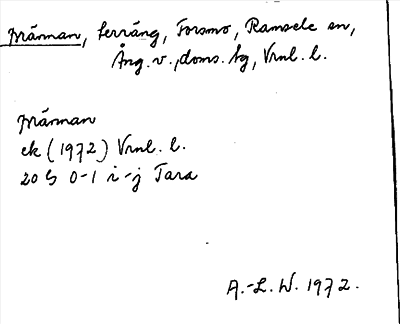 Märrnan, terräng, Forsmo, Ramsele sn,
Ång. v., doms. hg, Vrnl. l.
Märrnan
ek (1972) Vrnl. l.
20 G 0-1 i-j Tara
A.-L. W. 1972.